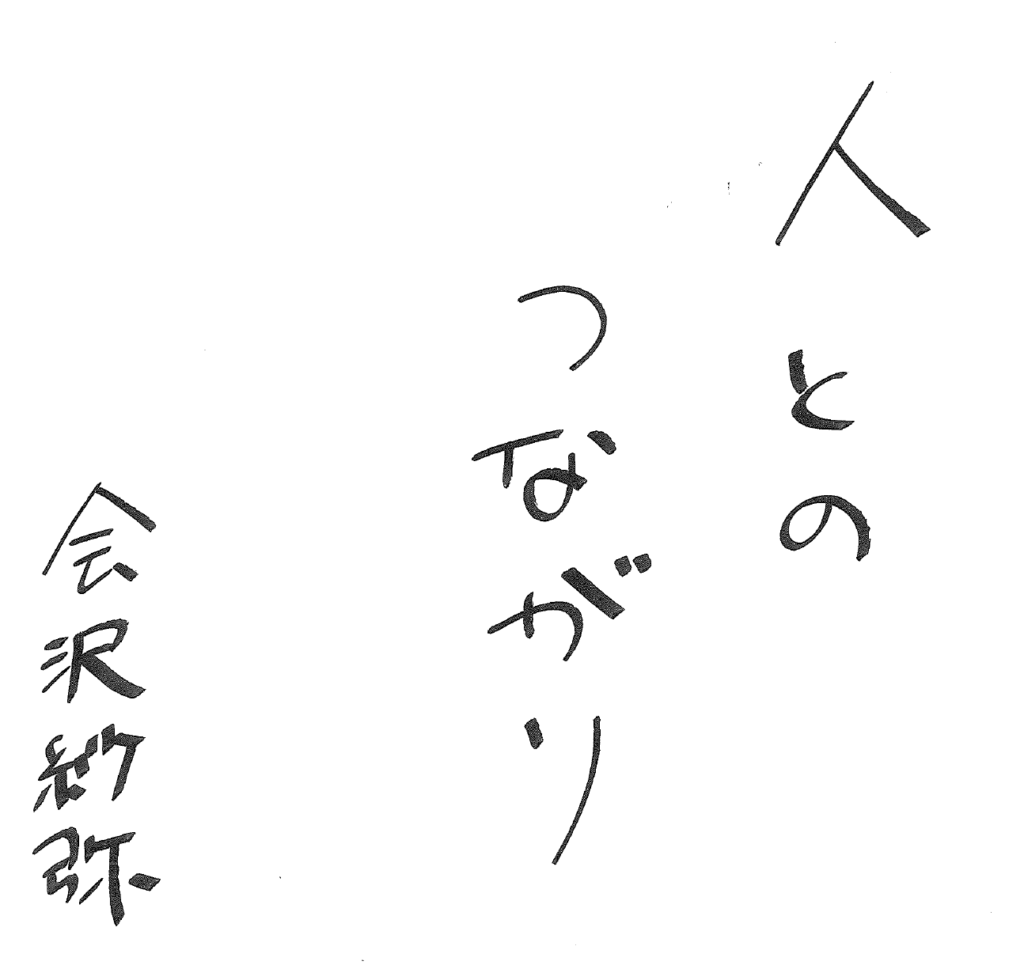 人との
つながり
会沢紗弥